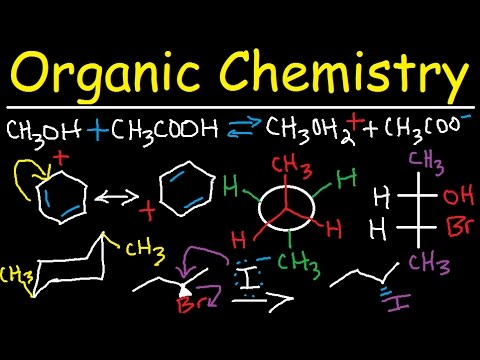 Organic Chemistry
CH₃OH + CH₃COOH ⇌ CH₃OH₂⁺ + CH₃COO⁻
+
+
CH₃
H
H
H
H
CH₃
CH₃
H
OH
H
Br
CH₃
CH₃
CH₃
Br
I⁻
I